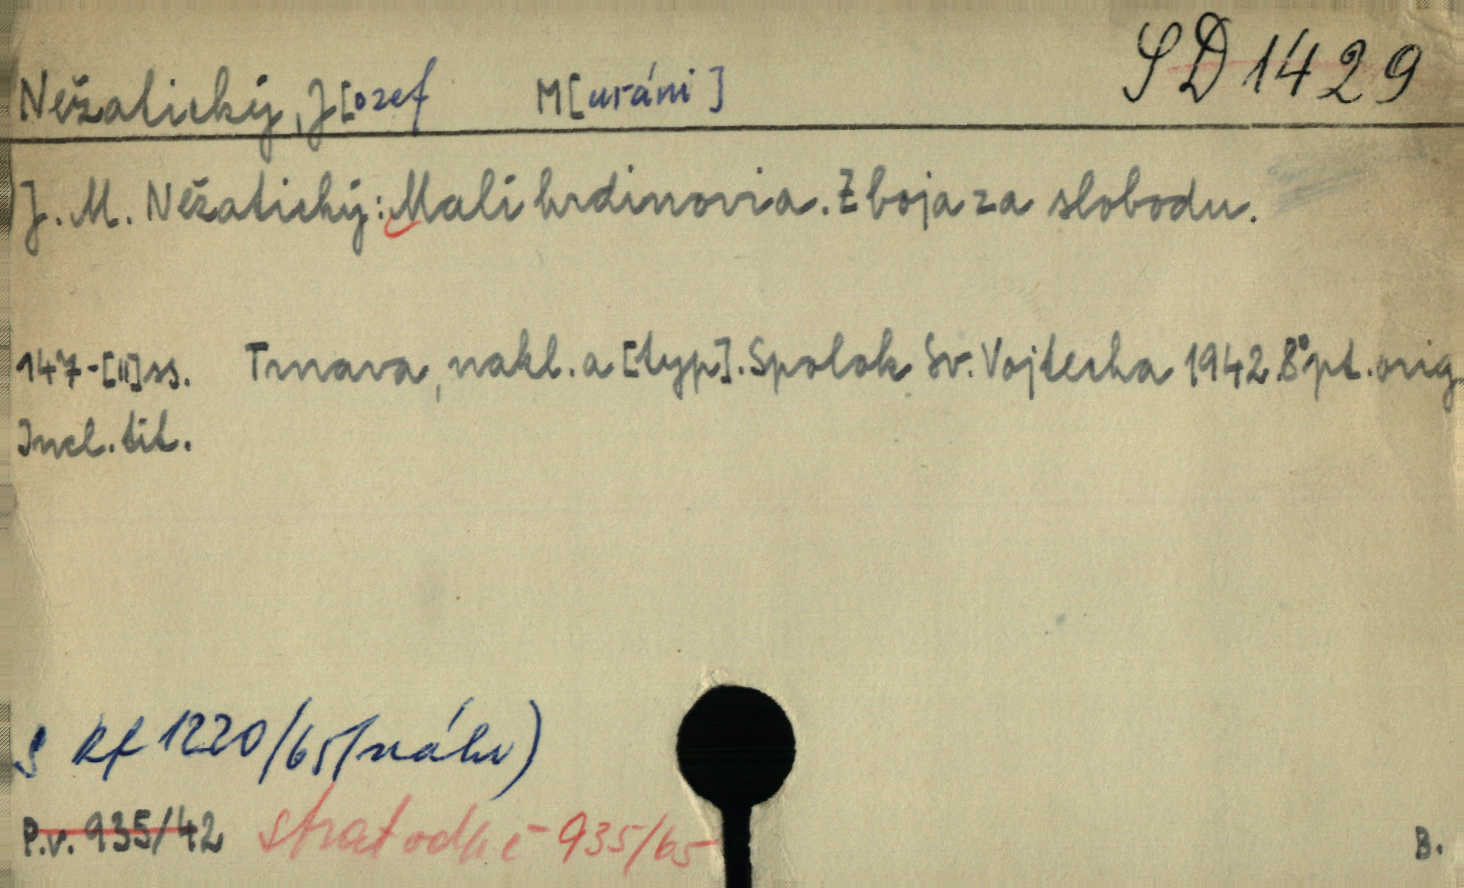 SD 1429
Nežatický, J[ozef M[uráni]
J. M. Nežatický: Malí hrdinovia. Z boja za slobodu.
147-[II] ss. Trnava, nakl. a [typ]. Spolok Sv. Vojtecha 1942. 8° pt. orig
Incl. tit.
S kf 1220/65 (náhr)
P.v. 935/42 strat odp č 935/65
B.